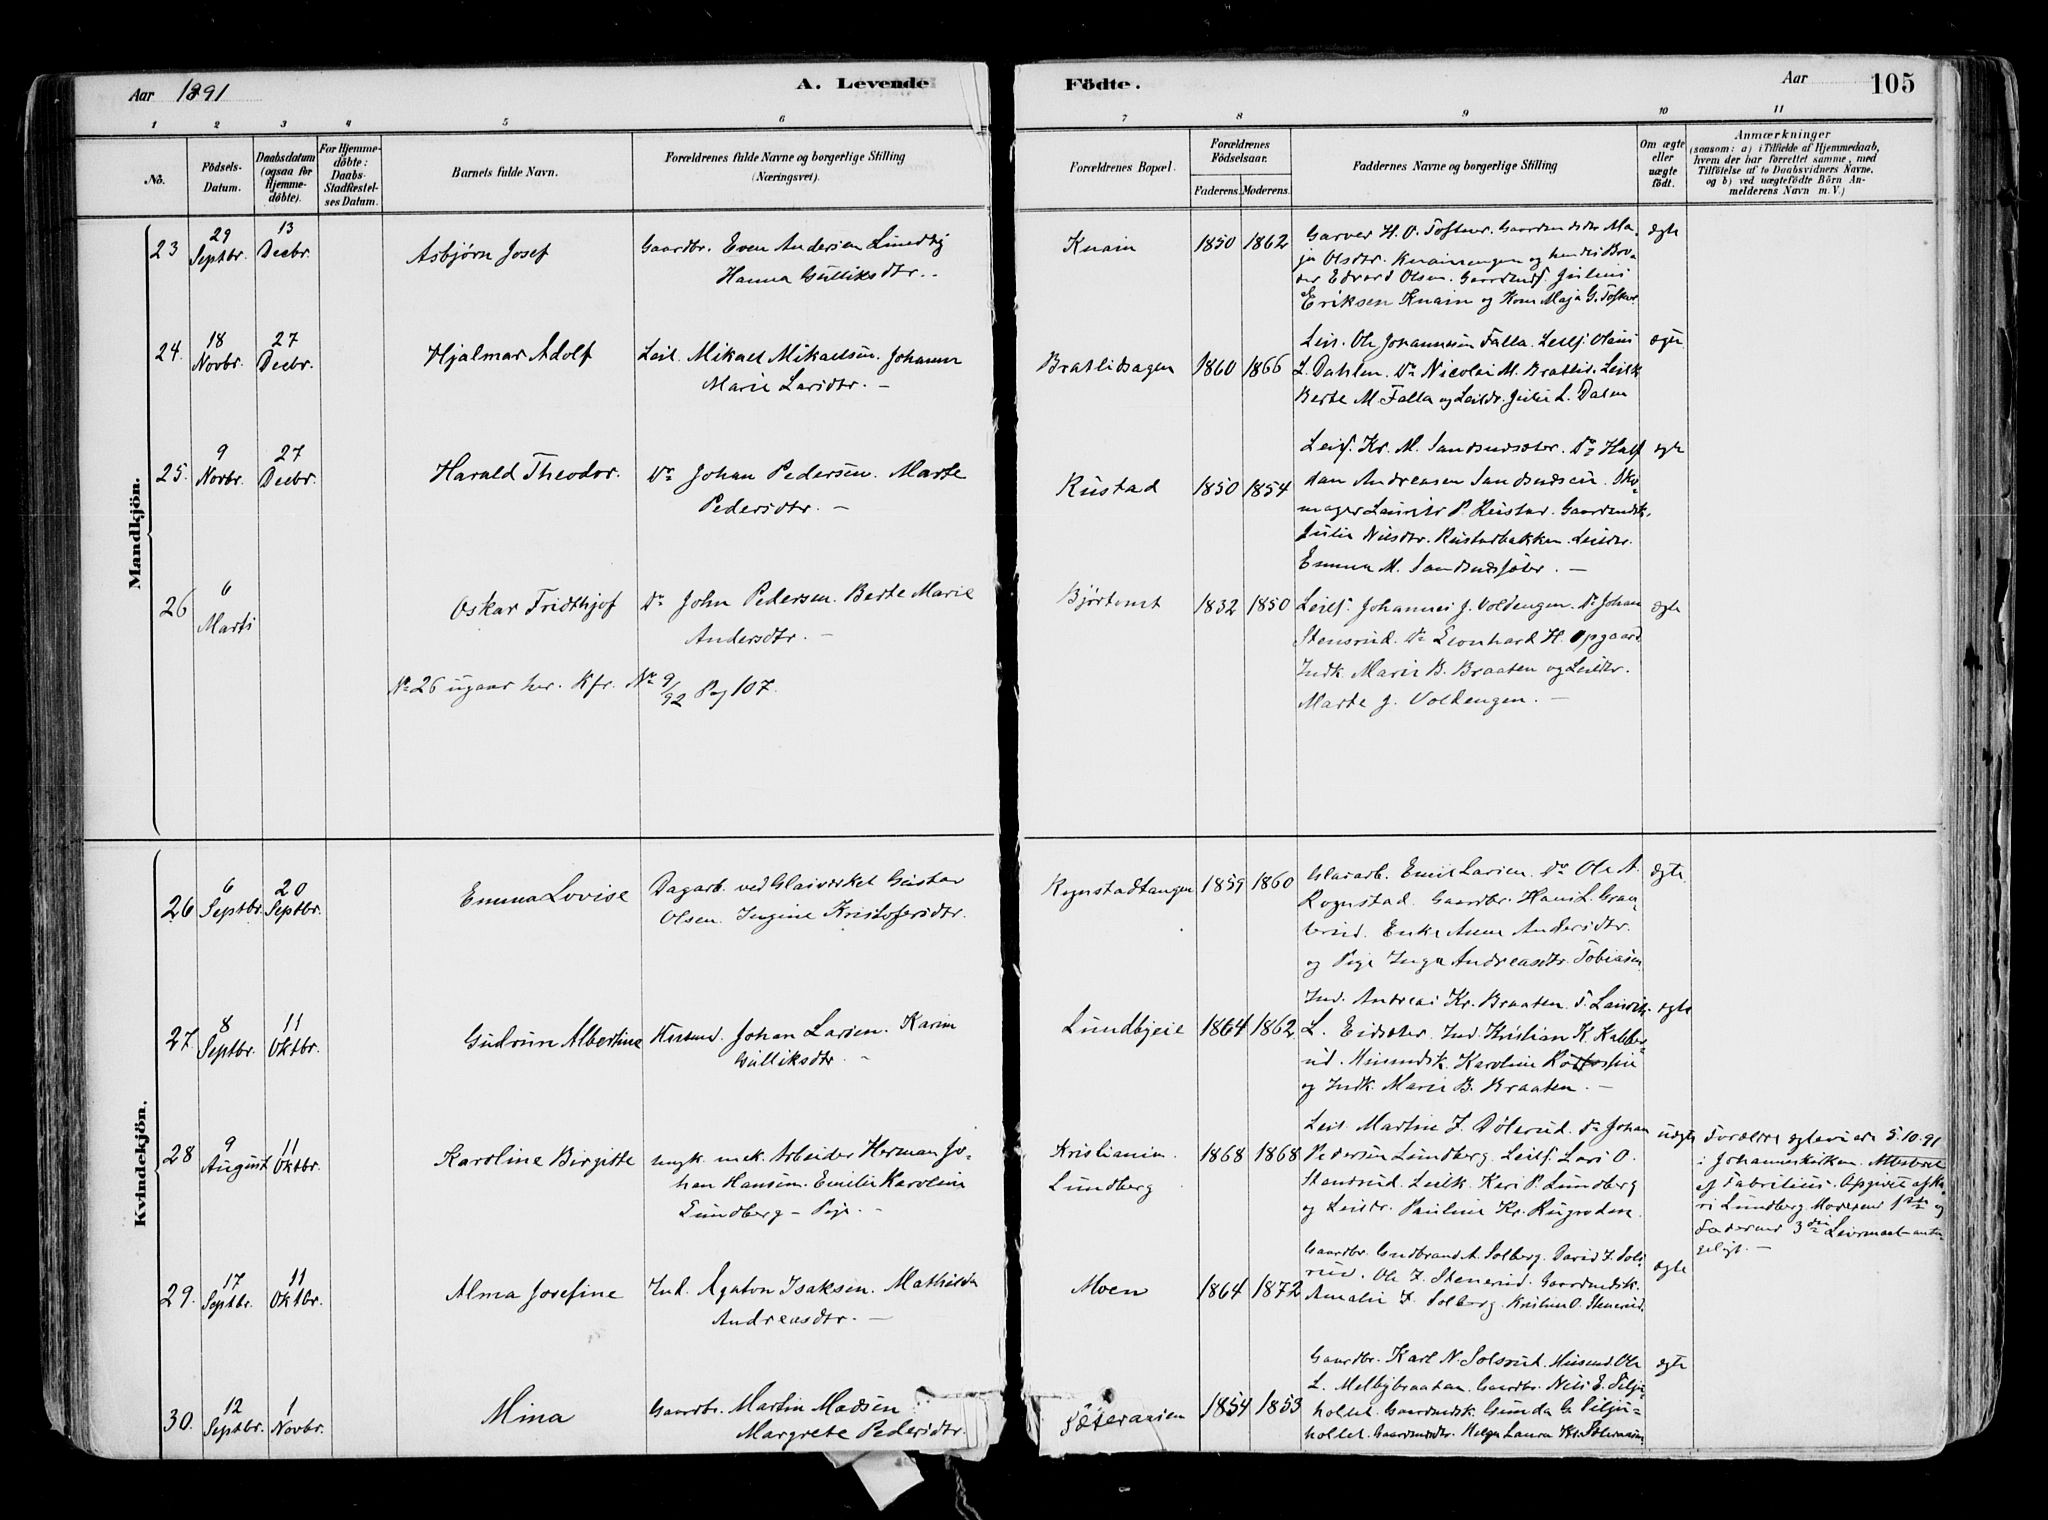 Aar 1891
A. Levende
Födte.
Aar
105
1 2 3 4 5 6 7 8 9 10 11
No.
Födsels-
Datum.
Daabsdatum
(ogsaa for
Hjemme-
döbte).
For Hjemme-
döbte:
Daabs-
Stadfæstel-
ses Datum.
Barnets fulde Navn.
Forældrenes fulde Navne og borgerlige Stilling
(Næringsvei).
Forældrenes Bopæl.
Forældrenes
Födselsaar.
Faderens. Moderens.
Faddernes Navne og borgerlige Stilling
Om ægte
eller
uægte
födt.
Anmærkninger
(saasom: a) i Tilfælde af Hjemmedaab,
hvem der har forrettet samme, med
Tilföielse af to Daabsvidners Navne,
og b) ved uægtefödte Börn An-
melderens Navn m. V.)
Mandkjön.
23
29
Septbr.
13
Decbr.
Asbjørn Josef
Gaardbr. Even Andersen Lundby
Hanna Gulliksdtr.
Knain
1850 1862
Garver H. O. Tofsrur. Gaardmdsdtr Ma-
ja Olsdtr. Knainengen og hendes Bro-
der Edvard Olsen. Gaardmds Julius
Eriksen Knain og Kone Maja G.
ægte
24.
18
Novbr.
27
Decbr.
Hjalmar Adolf
Leil. Mikael Mikaelsen. Johanne
Marie Larsdtr. –
Bratlidsagen
1860 1866
Leil. Ole Johannesen Falla. Leilf. Olaus
L. Dahlen. Do Nicolai M. Bratlid. Leilk
Berte M. Falla og Leildr. Julie L. Dalen
ægte
25.
9
Novbr.
27
Decbr.
Harald Theodor.
Do Johan Pedersen. Marte
Pedersdtr. –
Rustad
1850 1854
Leilf. Kr. M. Sandsundsæter. Do Half
dan Andreasen Sandsundseie. Sko-
mager Laurits P. Rustad. Gaardmdsk.
Julie Nilsdtr. Rustadbakken. Leildtr.
Emma M. Sandsundsæter. –
ægte
26
6
Marts
Oskar Fridthjof
Do John Pedersen. Berte Marie
Andersdtr. –
Bjørtomt
1832 1850
Leilf. Johannes J. Voldengen. Do Johan
Stensrud. Do Leonhard H. Opgaard
Indk. Marie B. Braaten og Leildtr.
Marte J. Voldengen. –
ægte
No 26 ugaar her. Kfr. No 9/92 Pag 107.
Kvindekjön.
26
6
Septbr.
20
Septbr.
Emma Lovise
Dagarb. ved Glasværket Gustav
Olsen. Ingine Kristofersdtr.
Rognstadtangen
1859 1860
Glasarb. Emil Larsen. Do Ole A.
Rognstad. Gaardbr. Hans L. Graa-
. Enke Anne Andersdtr.
og Pige Inga Andreasdtr. Tobiasen
ægte
27.
8
Septbr.
11
Oktbr.
Gudrun Albertine
Husmd. Johan Larsen. Karin
Gulliksdtr. –
Lundbyeie
1864 1862
Ind. Andreas Kr. Braaten. F. Laurits
L. Eidsæter. Ind. Kristian K. Kulbe-
rud. Husmdsk. Karoline
og Indk. Marie B. Braaten. –
ægte
28
9
August
11
Oktbr.
Karoline Birgitte
ungk. mek. Arbeider Herman Jo-
han Hansen. Emilie Karoline
Lundberg – Pige. –
Kristiania.
Lundberg
1868 1868
Leil. Martin J. Dölerud. Do Johan
Pedersen Lundberg. Leilf. Lars O.
Stensrud. Leilk. Kari P. Lundberg
og Leildtr. Pauline Kr. Rugroden.
uægte
Forældre ægteviede 5.10.91
i Johanneskirken. Attesteret
af Fabritius. Opgivet af Ka-
ri Lundberg Moderens 1ste og
Faderens 3die Leiermaal – anta-
geligt. –
29.
17
Septbr.
11
Oktbr.
Alma Josefine
Ind. Agaton Isaksen. Mathilde
Andreasdtr. –
Moen
1864 1872
Gaardbr. Gudbrand A. Solberg. David J. Sols-
rud. Ole J. Stenerud. Gaardmdsk.
Amalie J. Solberg. Kristine O. Stenerud.
ægte
30.
12
Septbr.
1
Novbr.
Mina
Gaardbr. Martin Madsen
Margrete Pedersdtr.
Sæteraasen
1854 1853
Gaardbr. Karl N. Solsrud. Husmd. Ole
L. Melbybraaten. Gaardbr. Nils E. Silju-
holtet. Gaardmdsk. Gunda G. Silju-
holtet. Gaardmdsdtr. Helga Laura Kr. Sæteraasen
ægte